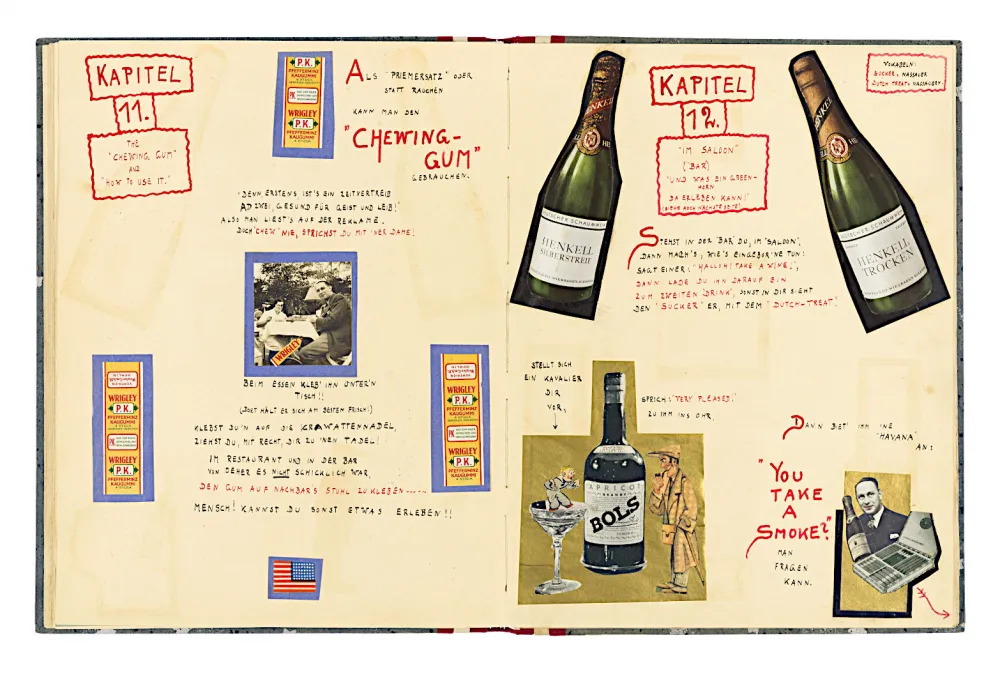 KAPITEL
11.
THE
"CHEWING GUM"
AND
"HOW TO USE IT."
P.K.
PFEFFERMINZ
KAUGUMMI
WRIGLEY
P.K.
PFEFFERMINZ
KAUGUMMI
ALS "PRIEMERSATZ" ODER
STATT RAUCHEN
KANN MAN DEN
"CHEWING-
GUM"
GEBRAUCHEN.
"DENN ERSTENS IST'S EIN ZEITVERTREIB
AD ZWEI, GESUND FÜR GEIST UND LEIB!"
ALSO MAN LIEST'S AUF DER REKLAME,
DOCH "CHEW" NIE, SPRICHST DU MIT 'NER DAME!
WRIGLEY
BEIM ESSEN KLEB' IHN UNTER'N
TISCH!!
(DORT HÄLT ER SICH AM BESTEN FRISCH!)
KLEBST DU'N AUF DIE KRAWATTENNADEL,
ZIEHST DU, MIT RECHT, DIR ZU 'NEN TADEL!
IM RESTAURANT UND IN DER BAR
VON JEHER ES NICHT SCHICKLICH WAR,
DEN GUM AUF NACHBAR'S STUHL ZU KLEBEN.....
MENSCH! KANNST DU SONST ETWAS ERLEBEN!!
WRIGLEY
P.K.
PFEFFERMINZ
KAUGUMMI
PK
WRIGLEY
P.K.
PFEFFERMINZ
KAUGUMMI
WRIGLEY
P.K.
PFEFFERMINZ
KAUGUMMI
PK
WRIGLEY
P.K.
PFEFFERMINZ
KAUGUMMI
KAPITEL
12.
"IM SALOON"
("BAR)
"UND WAS EIN GREEN-
HORN
DA ERLEBEN KANN!"
(SIEHE AUCH NÄCHSTE SEITE!)
VOKABELN:
SUCKER = NASSAUER
DUTCH TREAT = NASSAUERY.
HENKELL
DEUTSCHER SCHAUMWEIN
HENKELL
SILBERSTREIF
HENKELL
DEUTSCHER SCHAUMWEIN
HENKELL
TROCKEN
STEHST IN DER "BAR" DU, IM "SALOON",
DANN MACH'S, WIE'S EINGEBOR'NE TUN:
SAGT EINER: "HALLOH! TAKE A WINE",
DANN LADE DU IHN DARAUF EIN
ZUM ZWEITEN "DRINK", SONST IN DIR SIEHT
DEN "SUCKER" ER, MIT DEM "DUTCH-TREAT!
STELLT SICH
EIN KAVALIER
DIR
VOR,
SPRICH: "VERY PLEASED!"
ZU IHM INS OHR
APRICOT
BRANDY
BOLS
DANN BIET' IHM 'NE
"HAVANA"
AN:
"YOU
TAKE
A
SMOKE?"
MAN
FRAGEN
KANN.